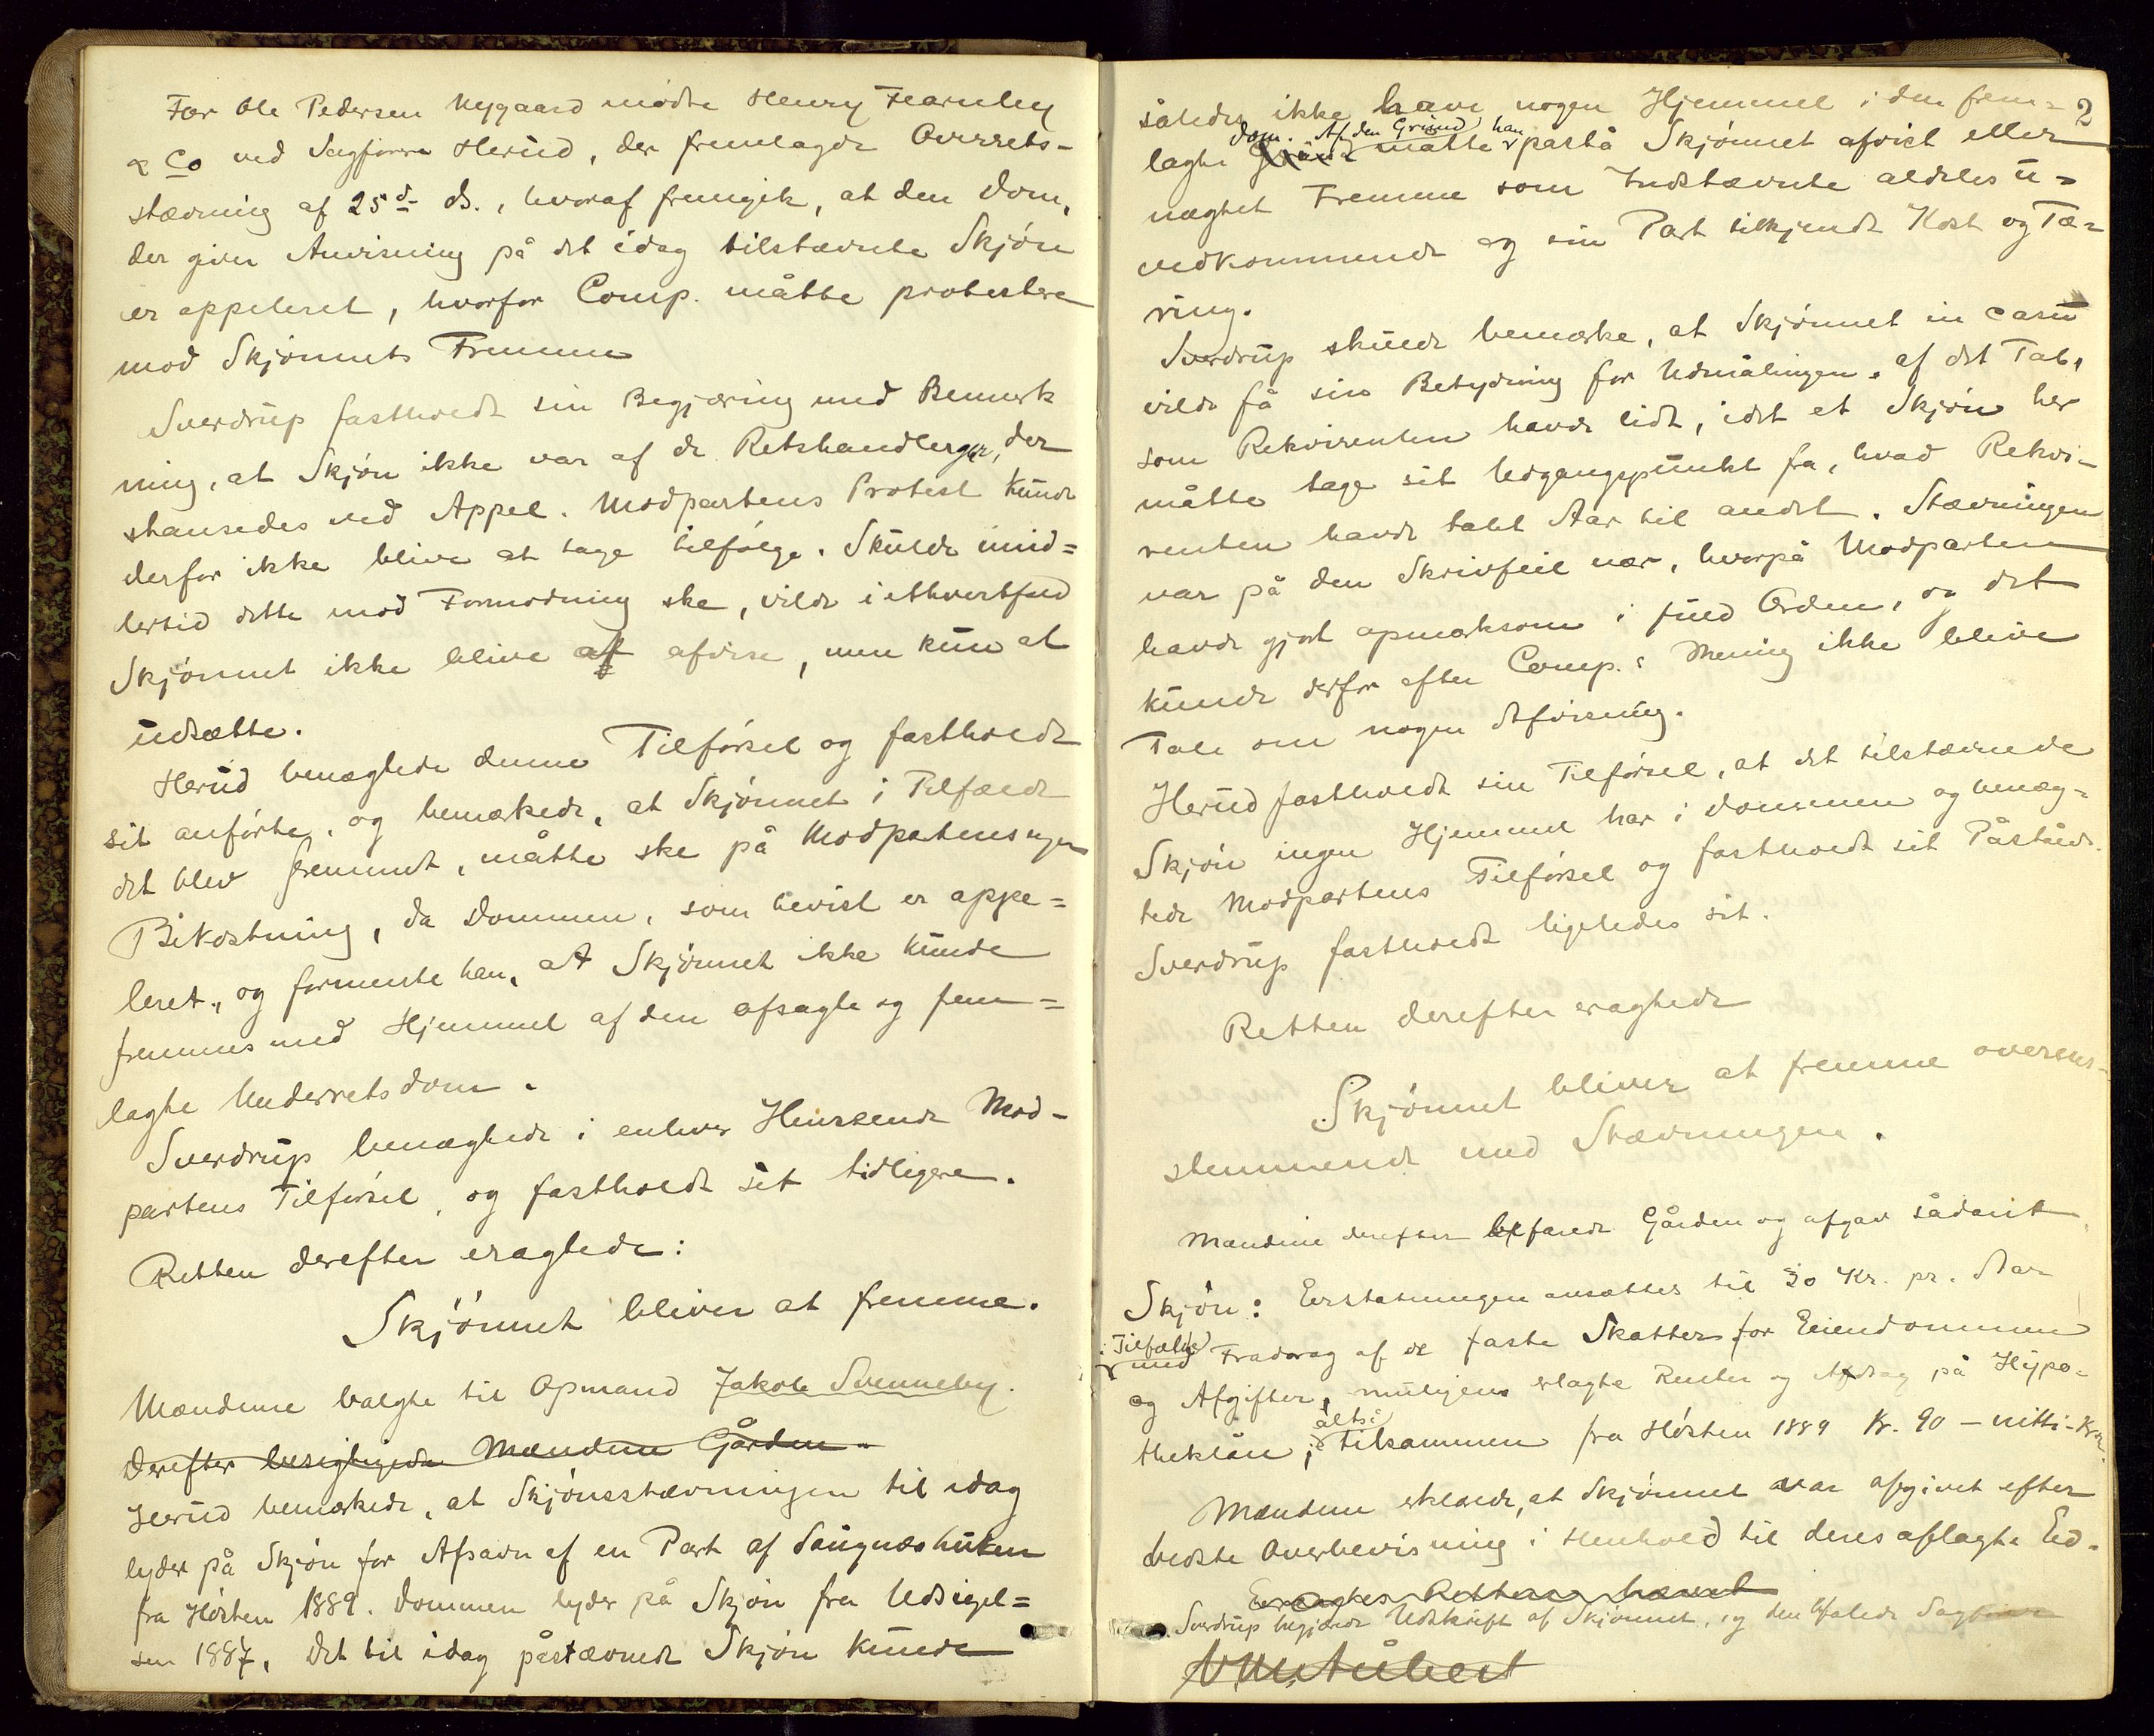 For Ole Pedersen Nygaard mødte Henry Fearnley
& Co ved Sagfører Herud, der fremlagde Overrets-
stævning af 25d ds., hvoraf fremgik, at den Dom,
der giver Anvisning på det idag tilstævnte Skjøn
er appeleret, hvorfor Comp. måtte protestere
mod Skjønnets Fremme
Sverdrup fastholdt sin Begjæring med Bemerk
ning, at Skjøn ikke var af de Retshandlerger, der
stansedes ved Appel. Modpartens Protest kunde
derfor ikke blive at tage tilfølge. Skulde imid=
lertid dette mod Formodning ske, vilde i ethvertfald
Skjønnet ikke blive at afvise, men kun at
udsætte.
Herud benægtede denne Tilførsel og fastholdt
sit anførte, og bemærkede, at Skjønnet i Tilfælde
det blev fremmet, måtte ske på Modpartens egen
Bekostning, da Dommen, som bevist er appe=
leret, og formente han, at Skjønnet ikke kunde
fremmes med Hjemmel af den afsagte og frem=
lagte Underretsdom.
Sverdrup benægtede i enhver Henseende Mod-
partens Tilførsel, og fastholdt sit tidligere.
Retten derefter eragtede:
Skjønnet bliver at fremme.
Mændene valgte til Opmand Jakob Svenneby.
Derefter besigtigede Mændene Gården.
Herud bemærkede, at Skjønsstævningen til idag
lyder på Skjøn for Afsavn af en Part af Saugnæshuken
fra Høsten 1889. Dommen lyder på Skjøn fra Udsigel=
sen 1887. Det til idag påstævnede Skjøn kunde
2
således ikke have nogen Hjemmel i den frem=
Dom. Af den Grund han
lagte måtte påstå Skjønnet afvist eller
nægtet Fremme som Indstævnte aldeles u=
vedkommende og sin Part tilkjendt Kost og Tæ=
ring.
Sverdrup skulde bemærke, at Skjønnet in casu
vilde få sin Betydning for Udmålingen af det Tab,
som Rekvirenten havde lidt, idet et Skjøn her
måtte tage sit Udgangspunkt fra, hvad Rekvi-
renten havde tabt Aar til andet. Stævningen
var på den Skrivfeil nær, hvorpå Modparten
havde gjort opmærksom i fuld Orden, og det
kunde derfor efter Comp.s Mening ikke blive
Tale om nogen Afvisning.
Herud fastholdt sin Tilførsel, at det tilstævnede
Skjøn ingen Hjemmel har i Dommen og benæg=
tede Modpartens Tilførsel og fastholdt sit Påstand.
Sverdrup fastholdt ligeledes sit.
Retten derefter eragtede
Skjønnet bliver at fremme overens-
stemmende med Stævningen.
Mændene derefter befarede Gården og afgav sådant
Skjøn: Erstatningen ansættes til 30 Kr. pr. Aar
i Tilfælde
med Fradrag af de faste Skatter for Eiendommen
og Afgifter, muligens erlagte Renter og Afdrag på Hypo-
altså
theklån; tilsammen fra Høsten 1889 Kr. 90 – nitti-Kr.
Mændene erklærede, at Skjønnet var afgivet efter
bedste Overbevisning i Henhold til deres aflagte Ed.
Retten hævet
Sverdrup begjærede Udskrift af Skjønnet, og den befalede